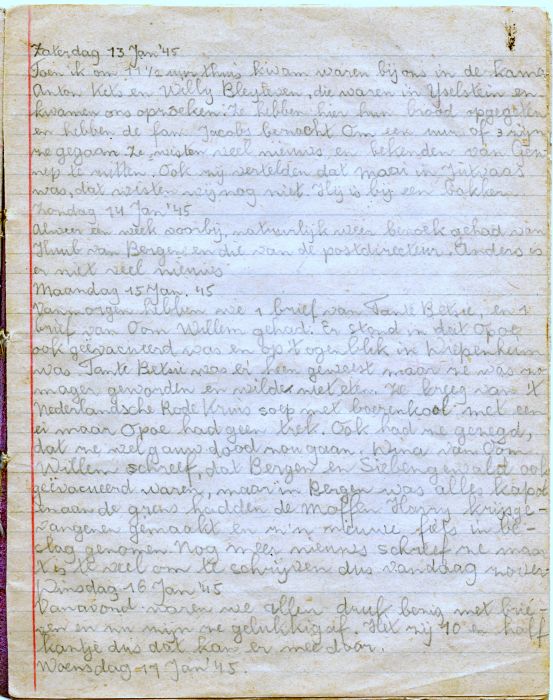 Zaterdag 13 Jan '45
Toen ik om 11½ uur thuis kwam waren bij ons in de kamer
Anton Kets en Willy , die waren in Yselstein en
kwamen ons opzoeken. Ze hebben hier hun brood opgegeten
en hebben de fam. Jacobs bezocht. Om een uur of 3 zijn
ze gegaan. Ze wisten veel nieuws en bekenden van Gen-
nep te zitten. Ook zij vertelden dat in
was, dat wisten wij nog niet. Hij is bij een bakker.
Zondag 14 Jan '45
Alweer een week voorbij, natuurlijk weer bezoek gehad van
Huub van Bergen en die van de postdirecteur. Anders is
er niet veel nieuws
Maandag 15 Jan. '45
Vanmorgen hebben we 1 brief van Tante Betsie, en 1
brief van Oom Willem gehad. Er stond in dat Opoe
ook geëvacueerd was en op 't ogenblik in
was. Tante Betsie was er heen geweest maar ze was zo
mager geworden en wilde niet eten. Ze kreeg van 't
Nederlandsche Rode Kruis soep met boerenkool met een
ei maar Opoe had geen trek. Ook had ze gezegd,
dat ze wel gauw dood zou gaan. van Oom
Willem schreef, dat Bergen en Siebengewald ook
geëvacueerd waren, maar in Bergen was alles kapot
enaan de grens hadden de Moffen Harry krijgsge-
vangenen gemaakt en z'n nieuwe fiets in be-
slag genomen. Nog meer nieuws schreef ze maar
't is te veel om te schrijven dus vandaag
Dinsdag 16 Jan '45
Vanavond waren we allen druk bezig met brie-
ven en nu zijn ze gelukkig af. Het zij 10 en half
kantje dus dat kan er mee door.
Woensdag 17 Jan '45.